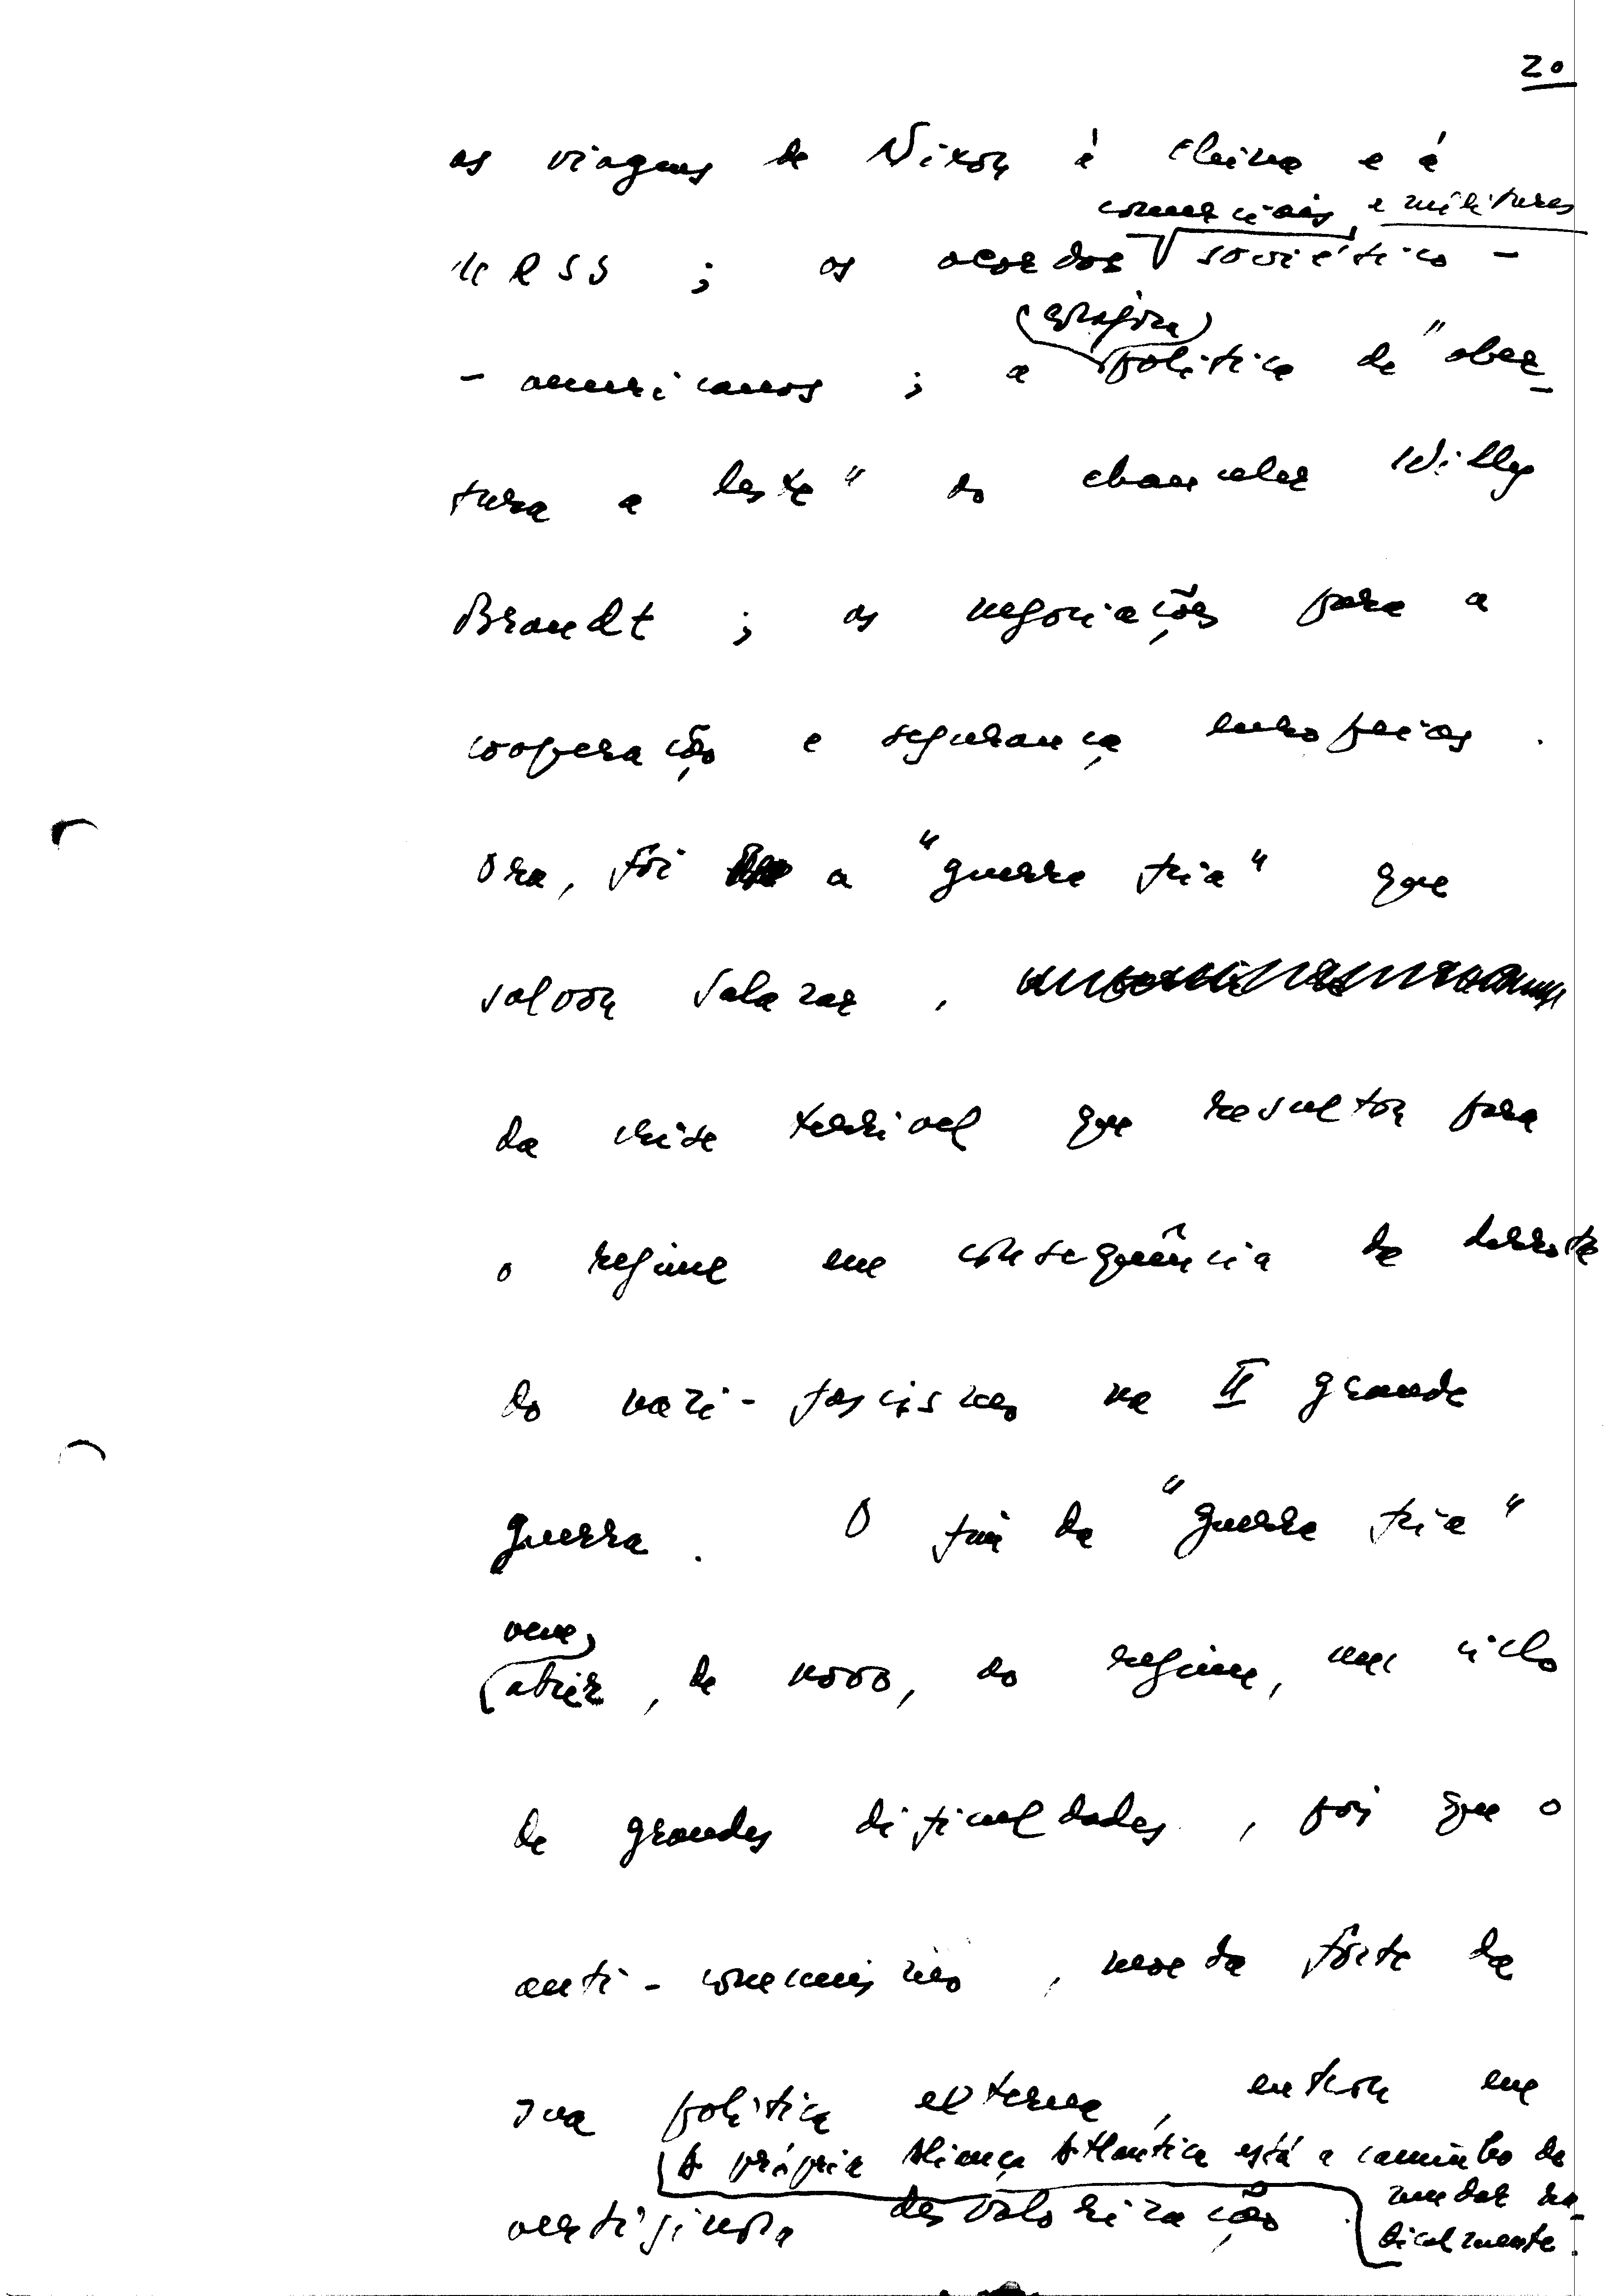 20
as viagens de Nixon à China e à
comerciais e militares
URSS ; os acordos soviético-
-americanos ; a política de "aber-
tura a leste" do chanceler Willy
Brandt ; as negociações para a
cooperação e segurança europeias.
Ora, foi a "guerra fria" que
salvou Salazar,
da crise terrível que resultou para
o regime em consequência da derrota
do nazi-fascismo na II grande
guerra. O fim da "guerra fria"
vem,
abrir, de novo, ao regime, um ciclo
de grandes dificuldades, pois que o
anti-comunismo, moeda forte da
sua política externa, entrou em
A própria Aliança Atlântica está a caminho de
vertiginosa desvalorização.
mudar ra-
dicalmente.